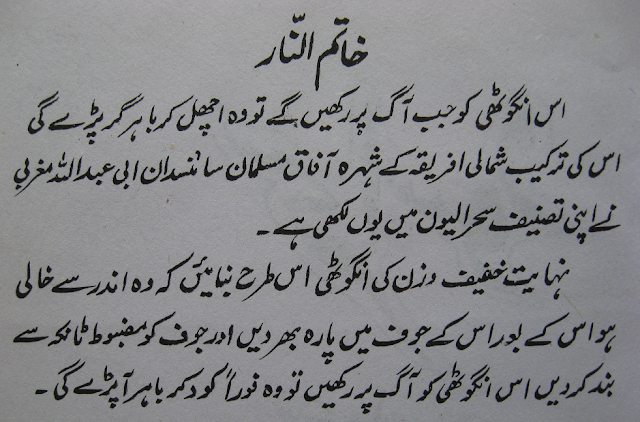 خاتم النّار
اس انگوٹھی کو جب آگ پر رکھیں گے تو وہ اچھل کر باہر گر پڑے گی
اس کی ترکیب شمالی افریقہ کے شہرہ آفاق مسلمان سائنسدان ابی عبد اللہ مغربی
نے اپنی تصنیف سحر الیون میں یوں لکھی ہے ۔
نہایت خفیف وزن کی انگوٹھی اس طرح بنایئں کہ وہ اندر سے خالی
ہو اس کے بور اس کے جوف میں پارہ بھر دیں اور جوف کو مضبوط ٹانکہ سے
بند کر دیں اس انگوٹھی کو آگ پر رکھیں تو وہ فوراً کود کر باہر آ پڑے گی ۔